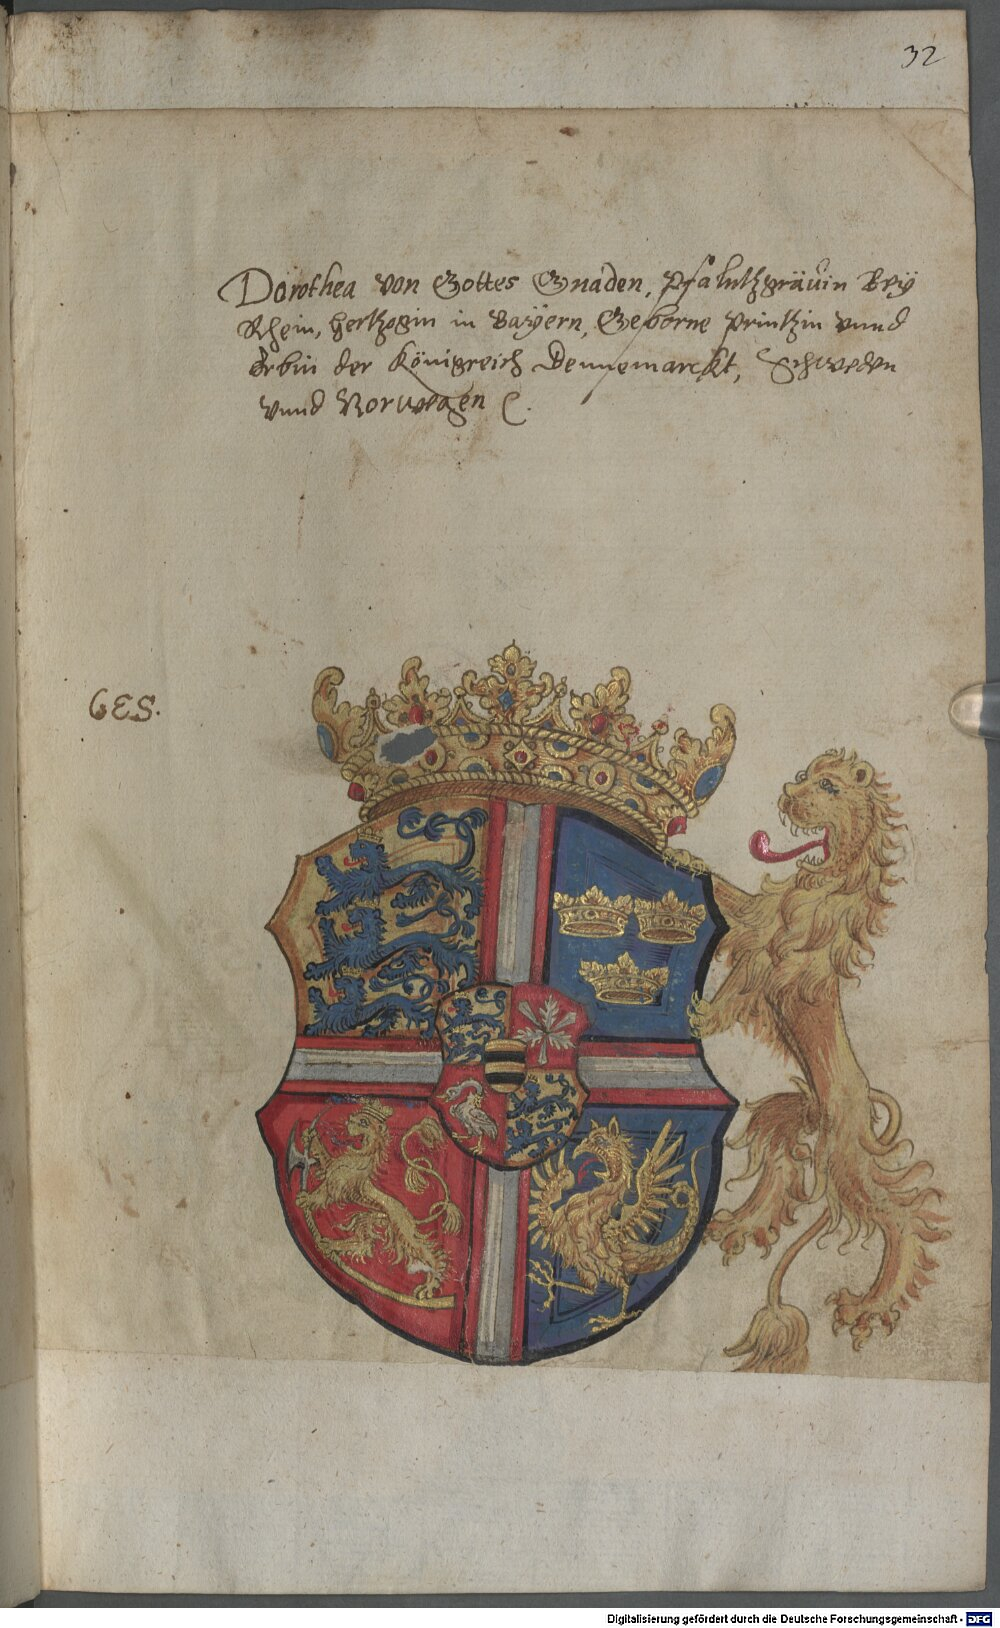 32
Dorothea von Gottes Gnaden, Pfalntzgrävin Bey
Rhein, Hertzogin in Bayern, Geborne Printzin vnnd
Erbin der Königreich Dennemarckt, Schweden
vnnd Norwegen
Digitalisierung gefördert durch die Deutsche Forschungsgemeinschaft - DFG